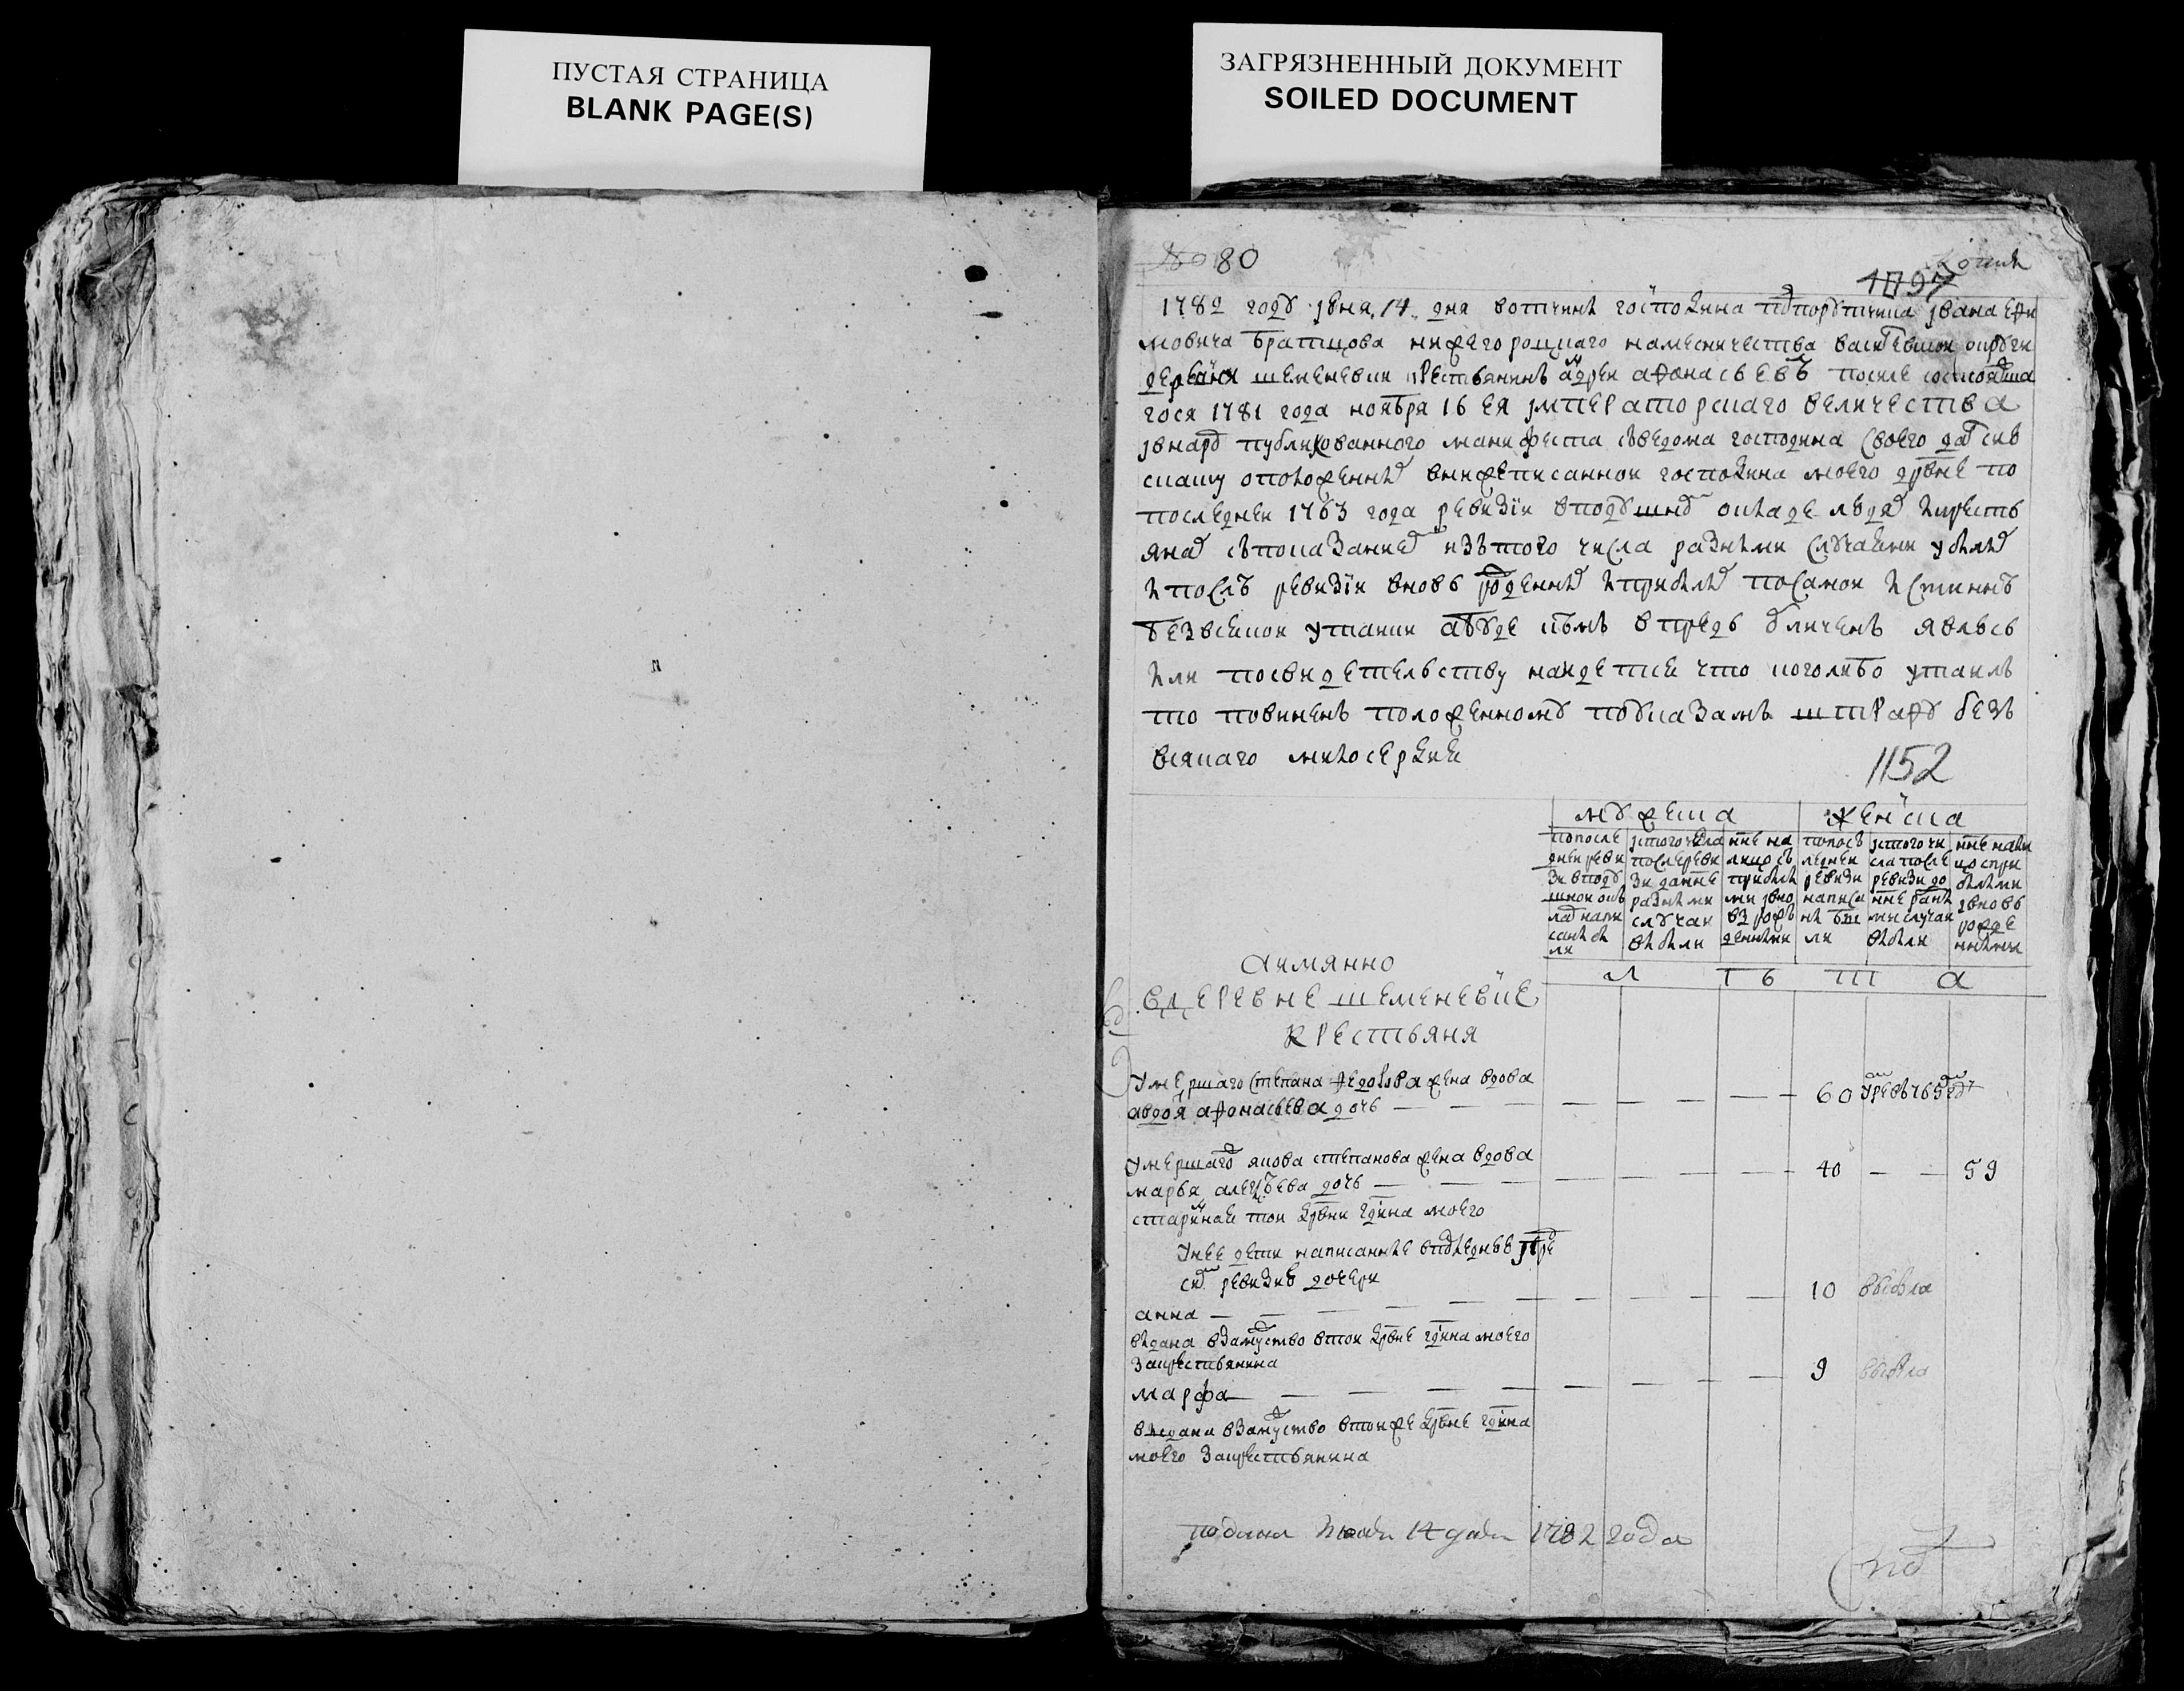 ПУСТАЯ СТРАНИЦА
BLANK PAGE(S)
ЗАГРЯЗНЕННЫЙ ДОКУМЕНТ
SOILED DOCUMENT
80
1782 году июня 14 дня вотчины господина подпорутчика ивана
мовича братцова нижегороцкаго намесничества округи
деревни шеменевки крестьянинъ афонасьевъ после состоявша
гося 1781 года ноября 16 ея императорскаго величества
и в народ публикованного манифеста съ ведома господина своего дал сию
скаску о положенных в нижеписанной господина моего древне по
последней 1763 года ревизии в подушной окладе людях и кресть
янах съ показанием изъ того числа разными случаеми убылых
и послъ ревизии вновь рожденных и прибылых по самой истиннъ
безъ всякой утайки а буде къмъ впредь обличенъ явлюсь
или по свидетельству найдетси что кого либо утаилъ
то повиненъ положенному по указамъ штрафу безъ
всякаго милосердия
1152
мужеска
женска
по после
дней реви
зи в поду
шной окъ
лад напи
саны бы
ли
ис того числа
после реви
зи до ныне
разными
случаи
выбыли
ныне на
лицо съ
прибылы
ми и вно
вь рожъ
денными
по посъ
ледней
ревизи
написа
ны бы
ли
ис того чи
сла после
ревизи до
ныне разны
ми случаи
выбыли
ныне нали
цо с при
былыми
и вновь
рожде
нными
а имянно
л ѣ т а
в деревне шеменевке
крестьяня
умершаго степана федорова жена вдова
авдотя афонасьева дочь — — — 60
умершаго якова степанова жена вдова
марья дочь — — — 40 — — 59
старинная той древни гдина моего
у нее дети написанные в последней пре
ревизие дочери
анна — — — 10 выбыла
выдана в замужство в той древне гдина моего
за крестьянина
марфа — — — 9 выбыла
выдана в замужство в той же древне гдина
моего за крестьянина
подана июня 14 дня 1782 года